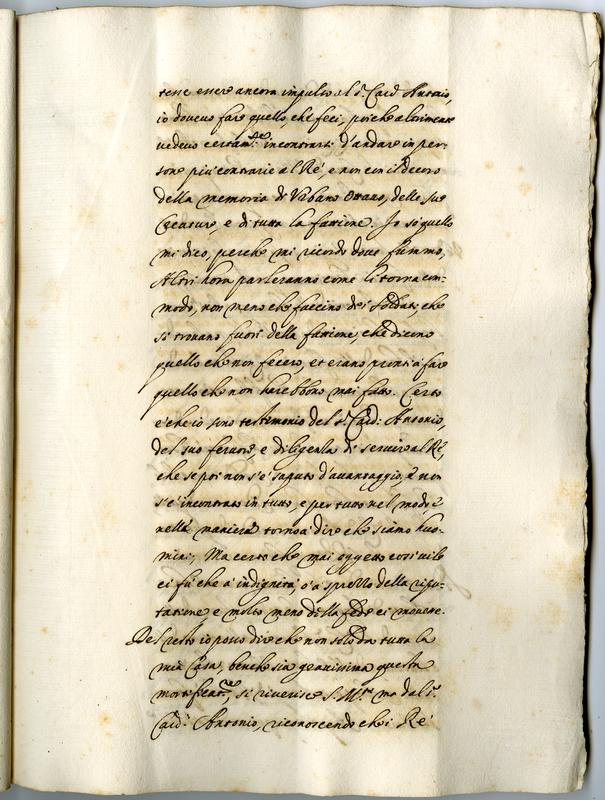 tesse essere ancora impulso al s.r Card. Antonio,
io doveva fare quello, che feci, poiche altrimente
vedevo certam.te incontrarsi d'andare in per=
sone piu contrarie al Rè, e non con il decoro
della memoria di Urbano Ottavo, delle sue
Creature, e di tutta la fattione. Io sò quello
mi dico, perche mi ricordo dove fummo,
Altri hora parleranno come li torna com=
modo, non meno che faccino de i soldati, che
si trovano fuori della fattione, che dicono
quello che non fecero, et erano pronti a fare
quello che non harebbono mai fatto. Certo
è che io sono testimonio del s.r Card: Antonio,
del suo fervore e diligenza di servire al Rè,
che se poi non s'è saputo d'avantaggio, e non
s'è incontrato in tutto, e per tutto nel modo, e
nella maniera torno à dire che siamo huo=
mini; Ma certo che mai oggetto così vile
ci fù che à indignità, o à sprezzo della ripu=
tatione e molto meno della fede ci movesse.
Del resto io posso dire che non solo da tutta la
mia Casa, benche sia gravissima questa
mortificat.ne, si riverisce S. M.tà ma dal s.r
Card: Antonio, riconoscendo che i Rè